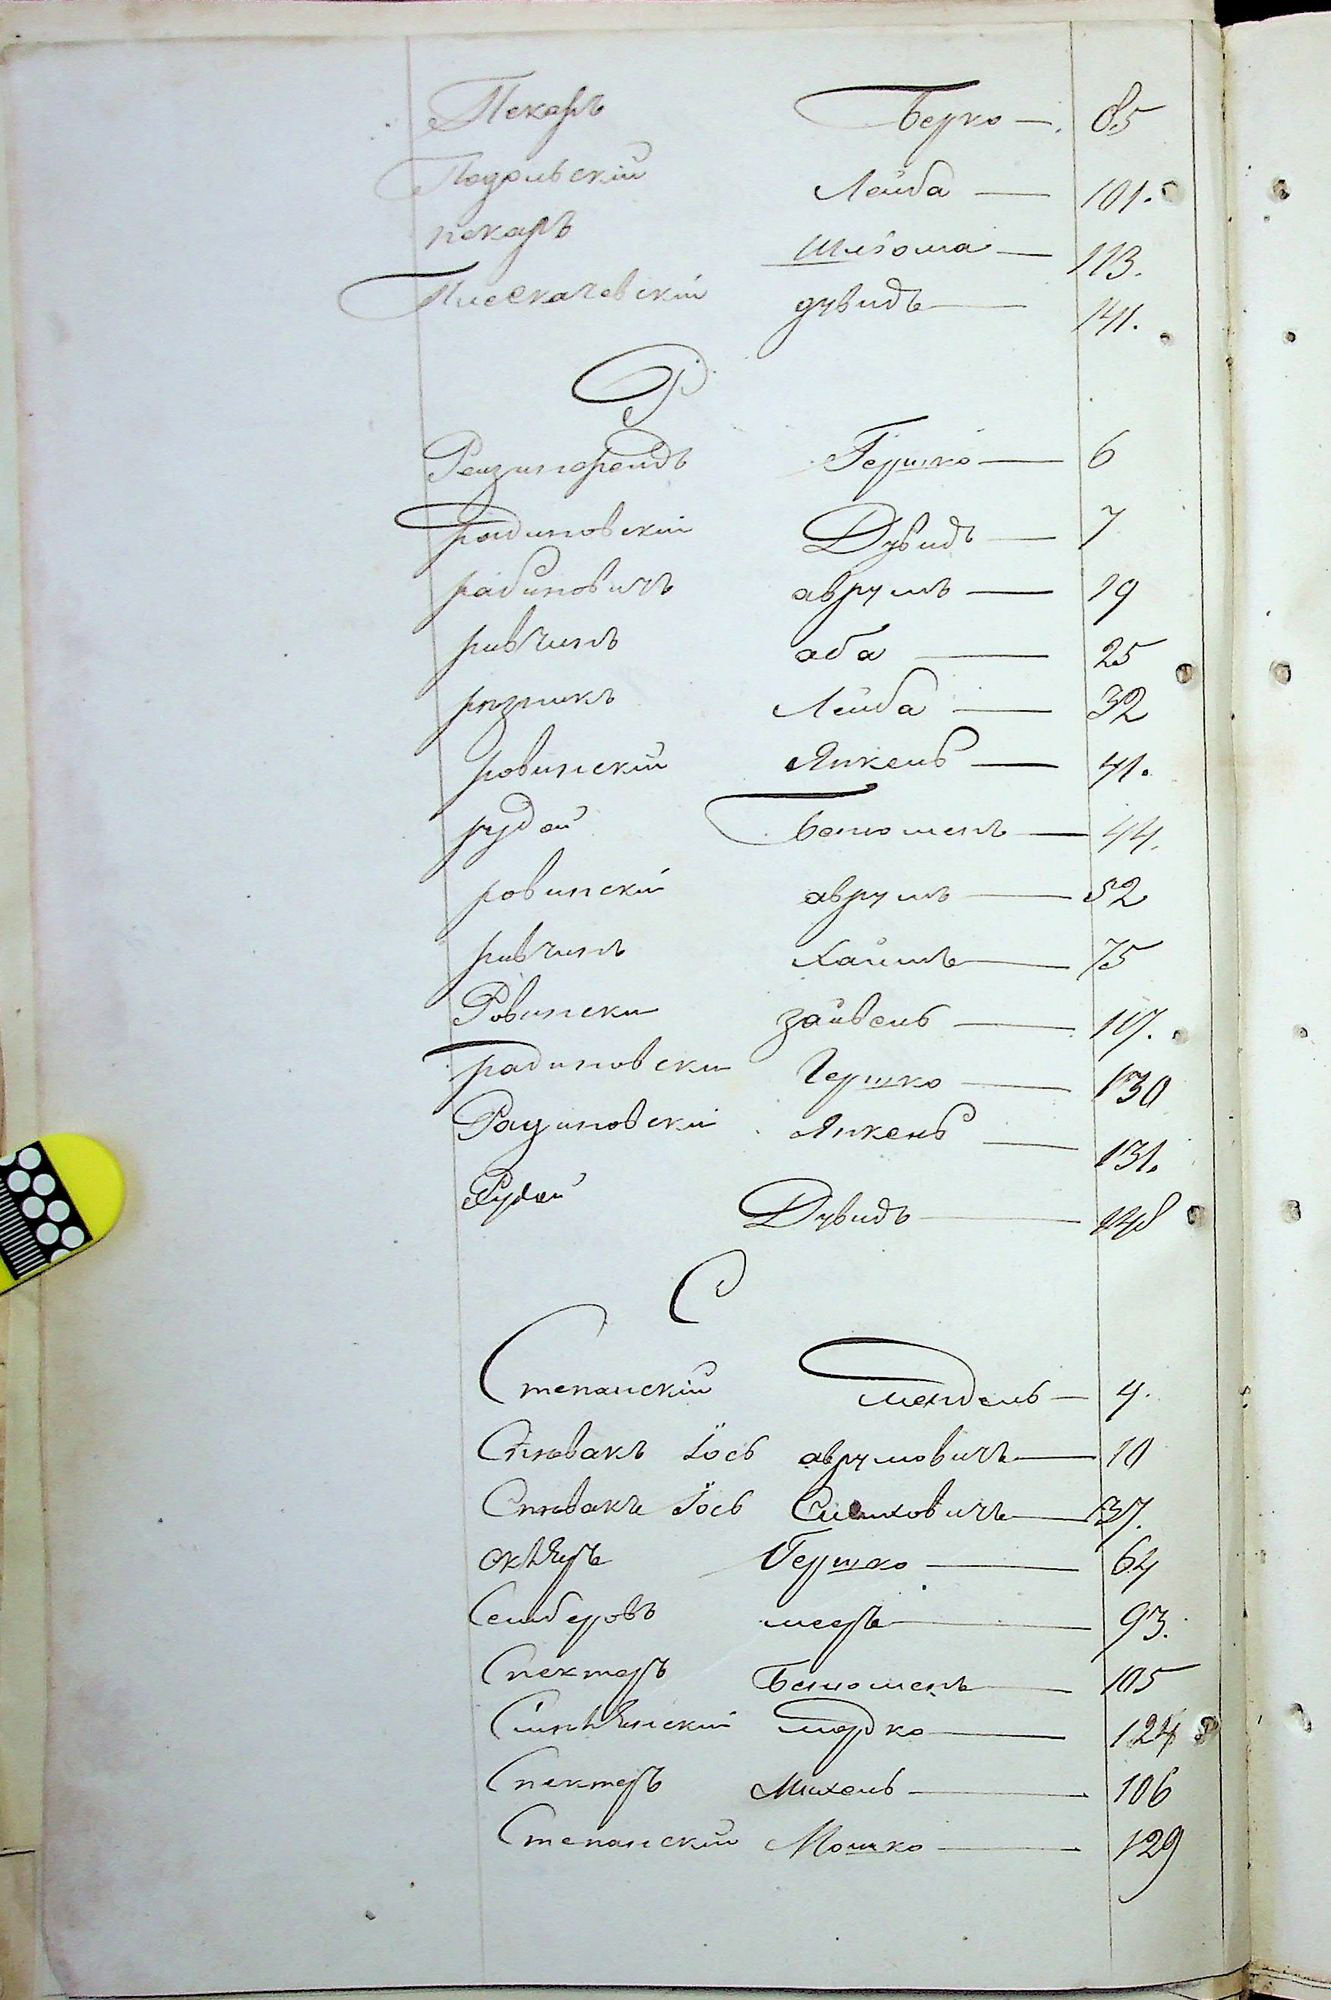 Пекаръ Берко — 85
Подольскій Лейба — 101.
пекаръ Шлёома — 113.
Писскачевскій дувидъ — 141.
Р
Гершко — 6
радиновскій Дувидъ — 7
рабиновичъ аврумъ — 19
ривчинъ аба — 25
рѣзникъ Лейба — 32
ровинскій Янкель — 41.
рудой Беньоменъ — 44.
ровинскій аврумъ — 52
ривчинъ Хаимъ — 75
Ровински Зайвель — 117.
радиновски Гершко — 130
Радиновски Янкель — 131.
Рудой Дувидъ — 148
С
Степанскій мендель — 4.
Спѣвакъ Іось аврумовичъ — 10
Спѣвакъ Іось — 37.
Гершко — 64
Сейберовъ мееръ — 93.
Спектеръ Беньоменъ — 105
мордко — 124
Спектеръ Михель — 106
Степанскій Мошко — 129